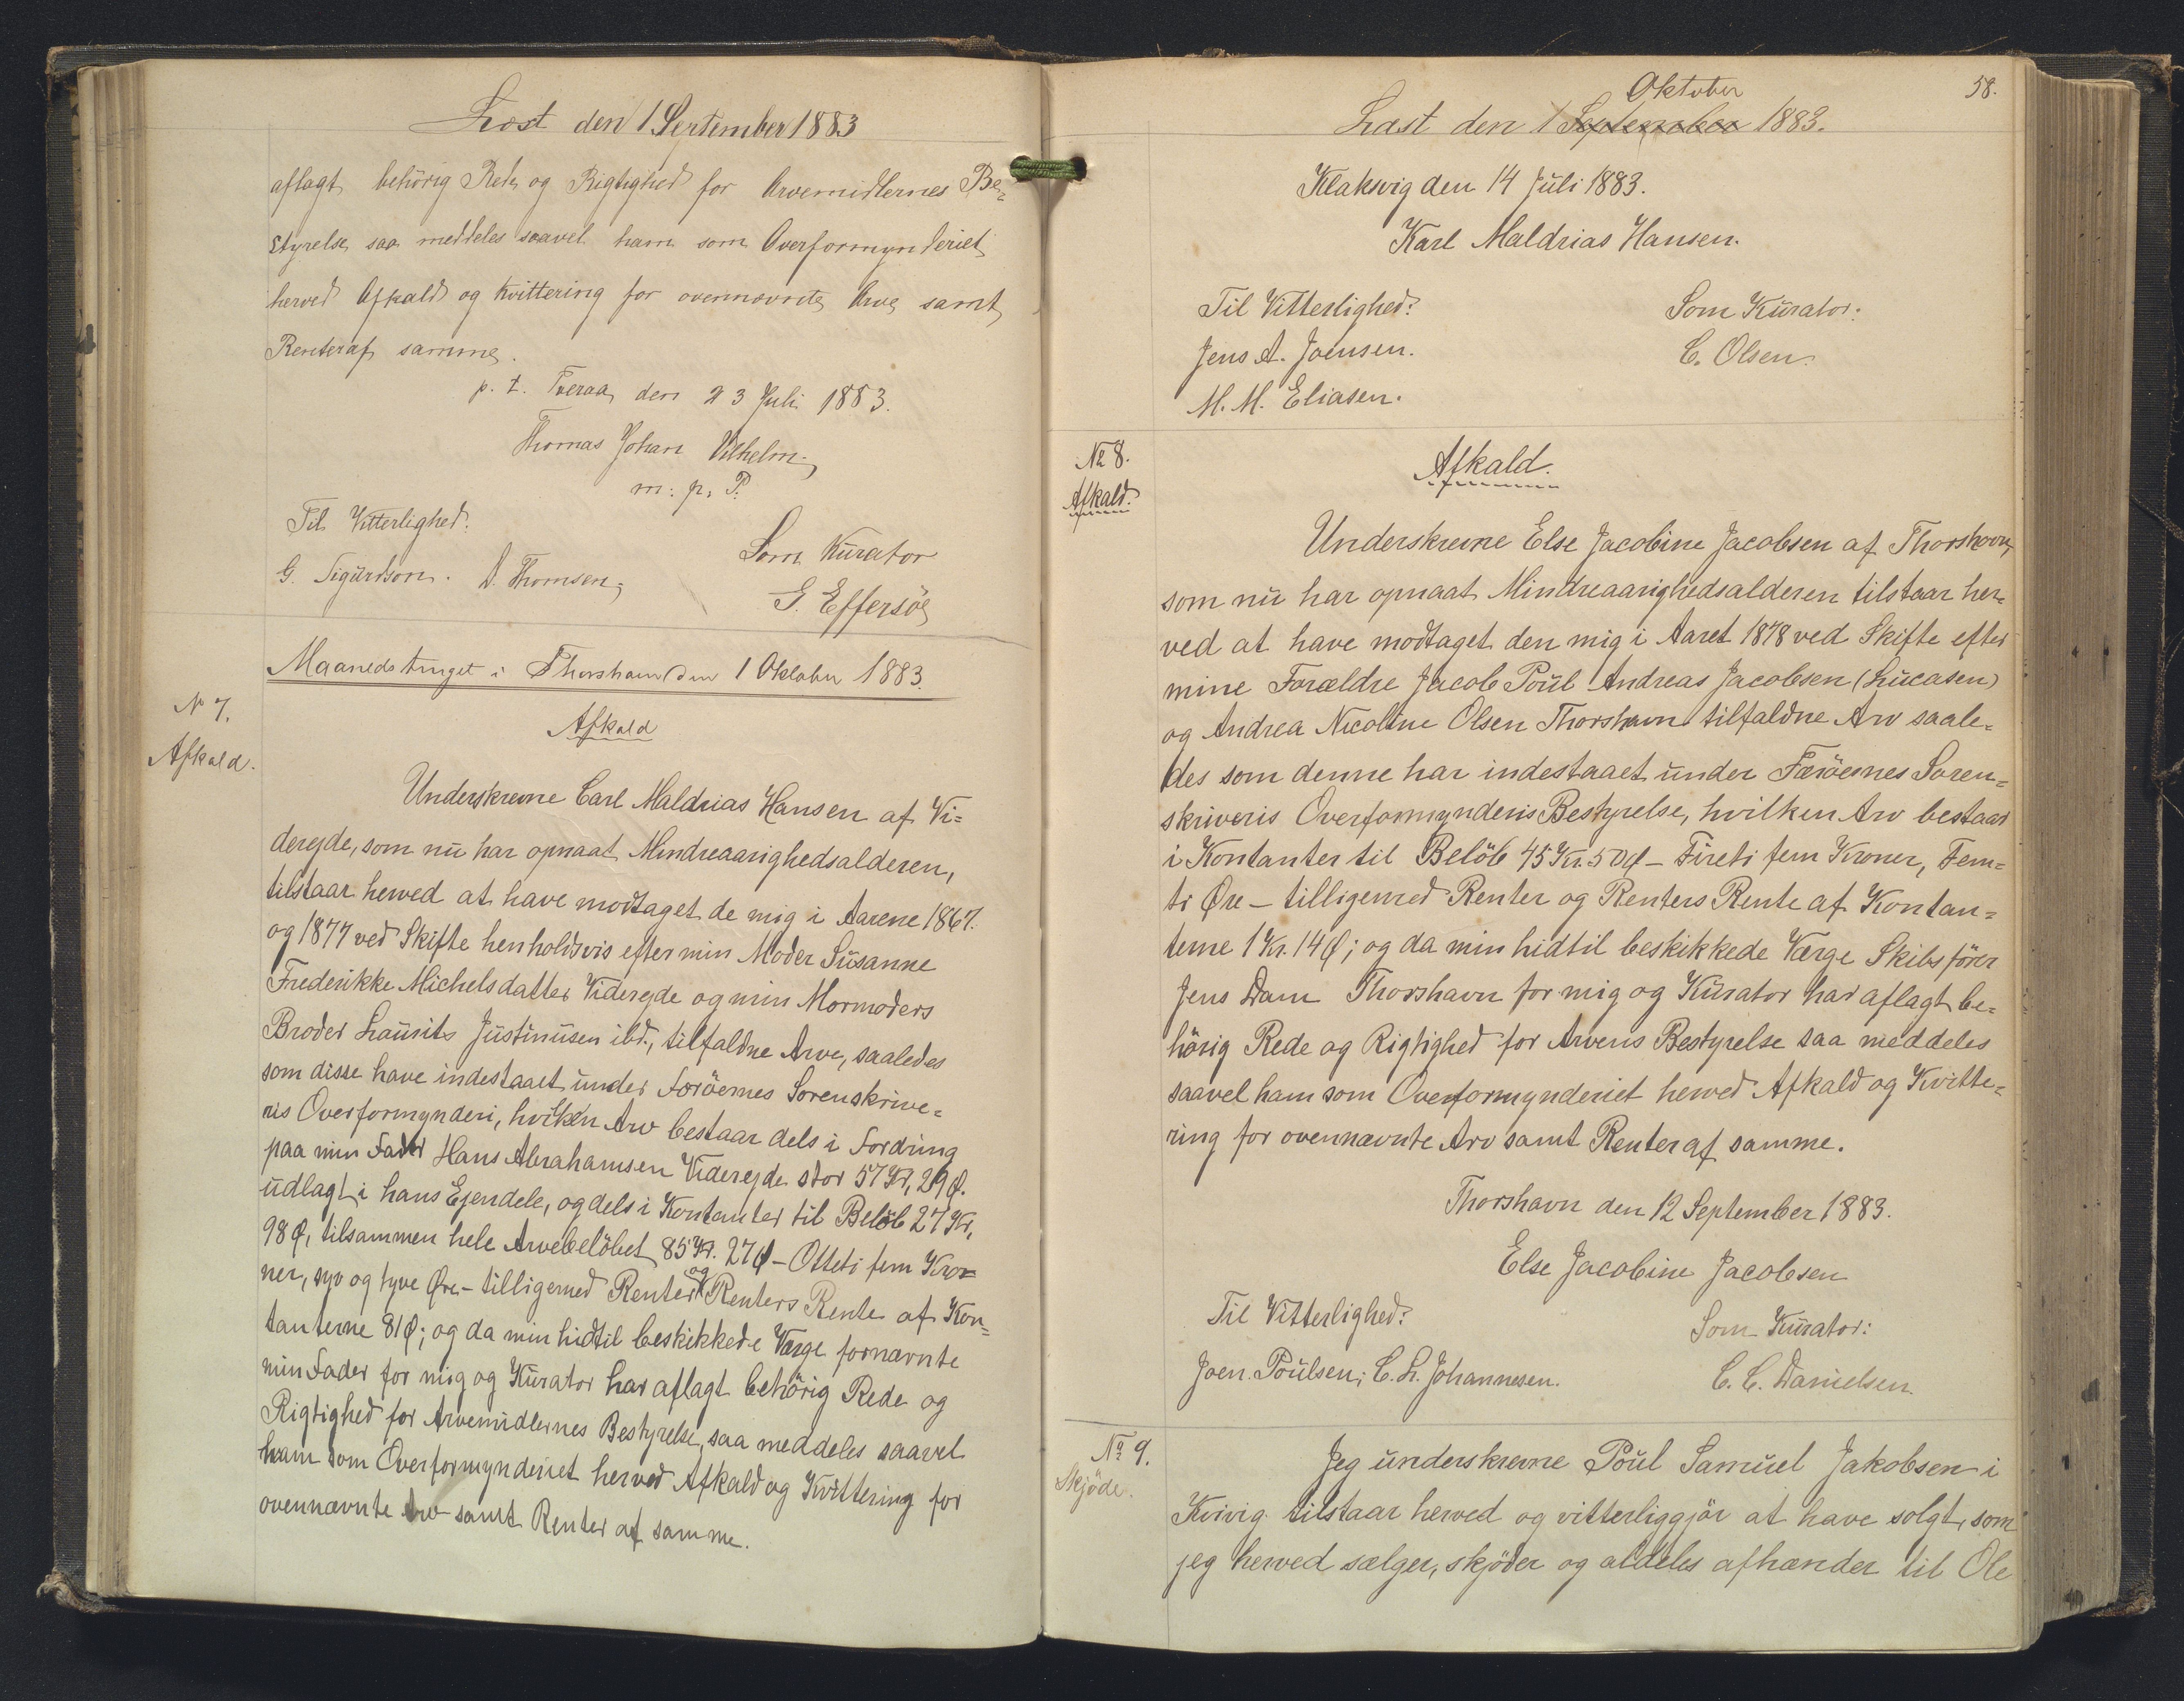 Læst den 1 September 1883
aflagt behörig Rede og Rigtighed for Arvemidlernes Be=
styrelse, saa meddeles saavel ham som Overformynderiet
herved Afkald og Kvittering for ovennævnte Arv, samt
Renter af samme.
p. t. Tveraa, den 23 Juli 1883.
Thomas Johan Vilhelm
m: p. P.
Til Vitterlighed.
G. Sigurdson. D. Thomsen,
Som Kurator
G. Effersöe
Maanedstinget i Thorshavn den 1 Oktober 1883.
No 7.
Afkald.
Afkald
Underskrevne Carl Maldrias Hansen af Vi=
derejde, som nu har opnaaet Mindreaarighedsalderen,
tilstaar herved at have modtaget de mig i Aarene 1867.
og 1877 ved Skifte henholdsvis efter min Moder Susanne
Frederikke Michelsdatter Viderejde og min Mormoders
Broder Laurits Justinusen ibd., tilfaldne Arve, saaledes
som disse have indestaaet under Færöernes Sorenskrive=
ris Overformynderi, hvilken Arv bestaar dels i Fordring
paa min Fader Hans Abrahamsen Viderejde stor 57 Kr, 29 Ø.
udlagt i hans Ejendele, og dels i Kontanter til Belöb 27 Kr,
98 Ø, tilsammen hele Arvebelöbet 85 Kr. 27 Ø - Otteti fem Kro=
ner, syv og tyve Øre - tilligemed Renter og Renters Rente af Kon=
tanterne 81 Ø; og da min hidtil beskikkede Værge fornævnte
min Fader for mig og Kurator har aflagt behörig Rede og
Rigtighed for Arvemidlernes Bestyrelse, saa meddeles saavel
ham som Overformynderiet herved Afkald og Kvittering for
ovennævnte Arv samt Renter af samme.
58.
Oktober
Læst den 1 September 1883.
Klaksvig den 14 Juli 1883.
Karl Maldrias Hansen.
Til Vitterlighed: Som Kurator:
Jens A. Joensen. C. Olsen.
M. M. Eliasen.
No 8.
Afkald.
Afkald.
Underskrevne Else Jacobine Jacobsen af Thorshavn,
som nu har opnaaet Mindreaarighedsalderen tilstaar her=
ved at have modtaget den mig i Aaret 1878 ved Skifte efter
mine Forældre Jacob Poul Andreas Jacobsen (Lucasen)
og Andrea Nicoline Olsen Thorshavn tilfaldne Arv saale=
des som denne har indestaaet under Færöernes Soren=
skriveris Overformynderis Bestyrelse, hvilken Arv bestaar
i Kontanter til Belöb 45 Kr. 50 Ø - Fireti fem Kroner, Fem=
ti Øre - tilligemed Renter og Renters Rente af Kontan=
terne 1 Kr. 14 Ø; og da min hidtil beskikkede Værge Skibsförer
Jens Dam Thorshavn for mig og Kurator har aflagt be=
hörig Rede og Rigtighed for Arvens Bestyrelse saa meddeles
saavel ham som Overformynderiet herved Afkald og Kvitte=
ring for ovennævnte Arv samt Renter af samme.
Thorshavn den 12 September 1883.
Else Jacobine Jacobsen
Til Vitterlighed: Som Kurator:
Joen. Poulsen; C. L. Johannesen. C. C. Danielsen.
No 9.
Skjöde.
Jeg underskrevne Poul Samuel Jakobsen i
Kvivig tilstaar herved og vitterliggjör at have solgt, som
jeg herved sælger, skjöder og aldeles afhænder til Ole